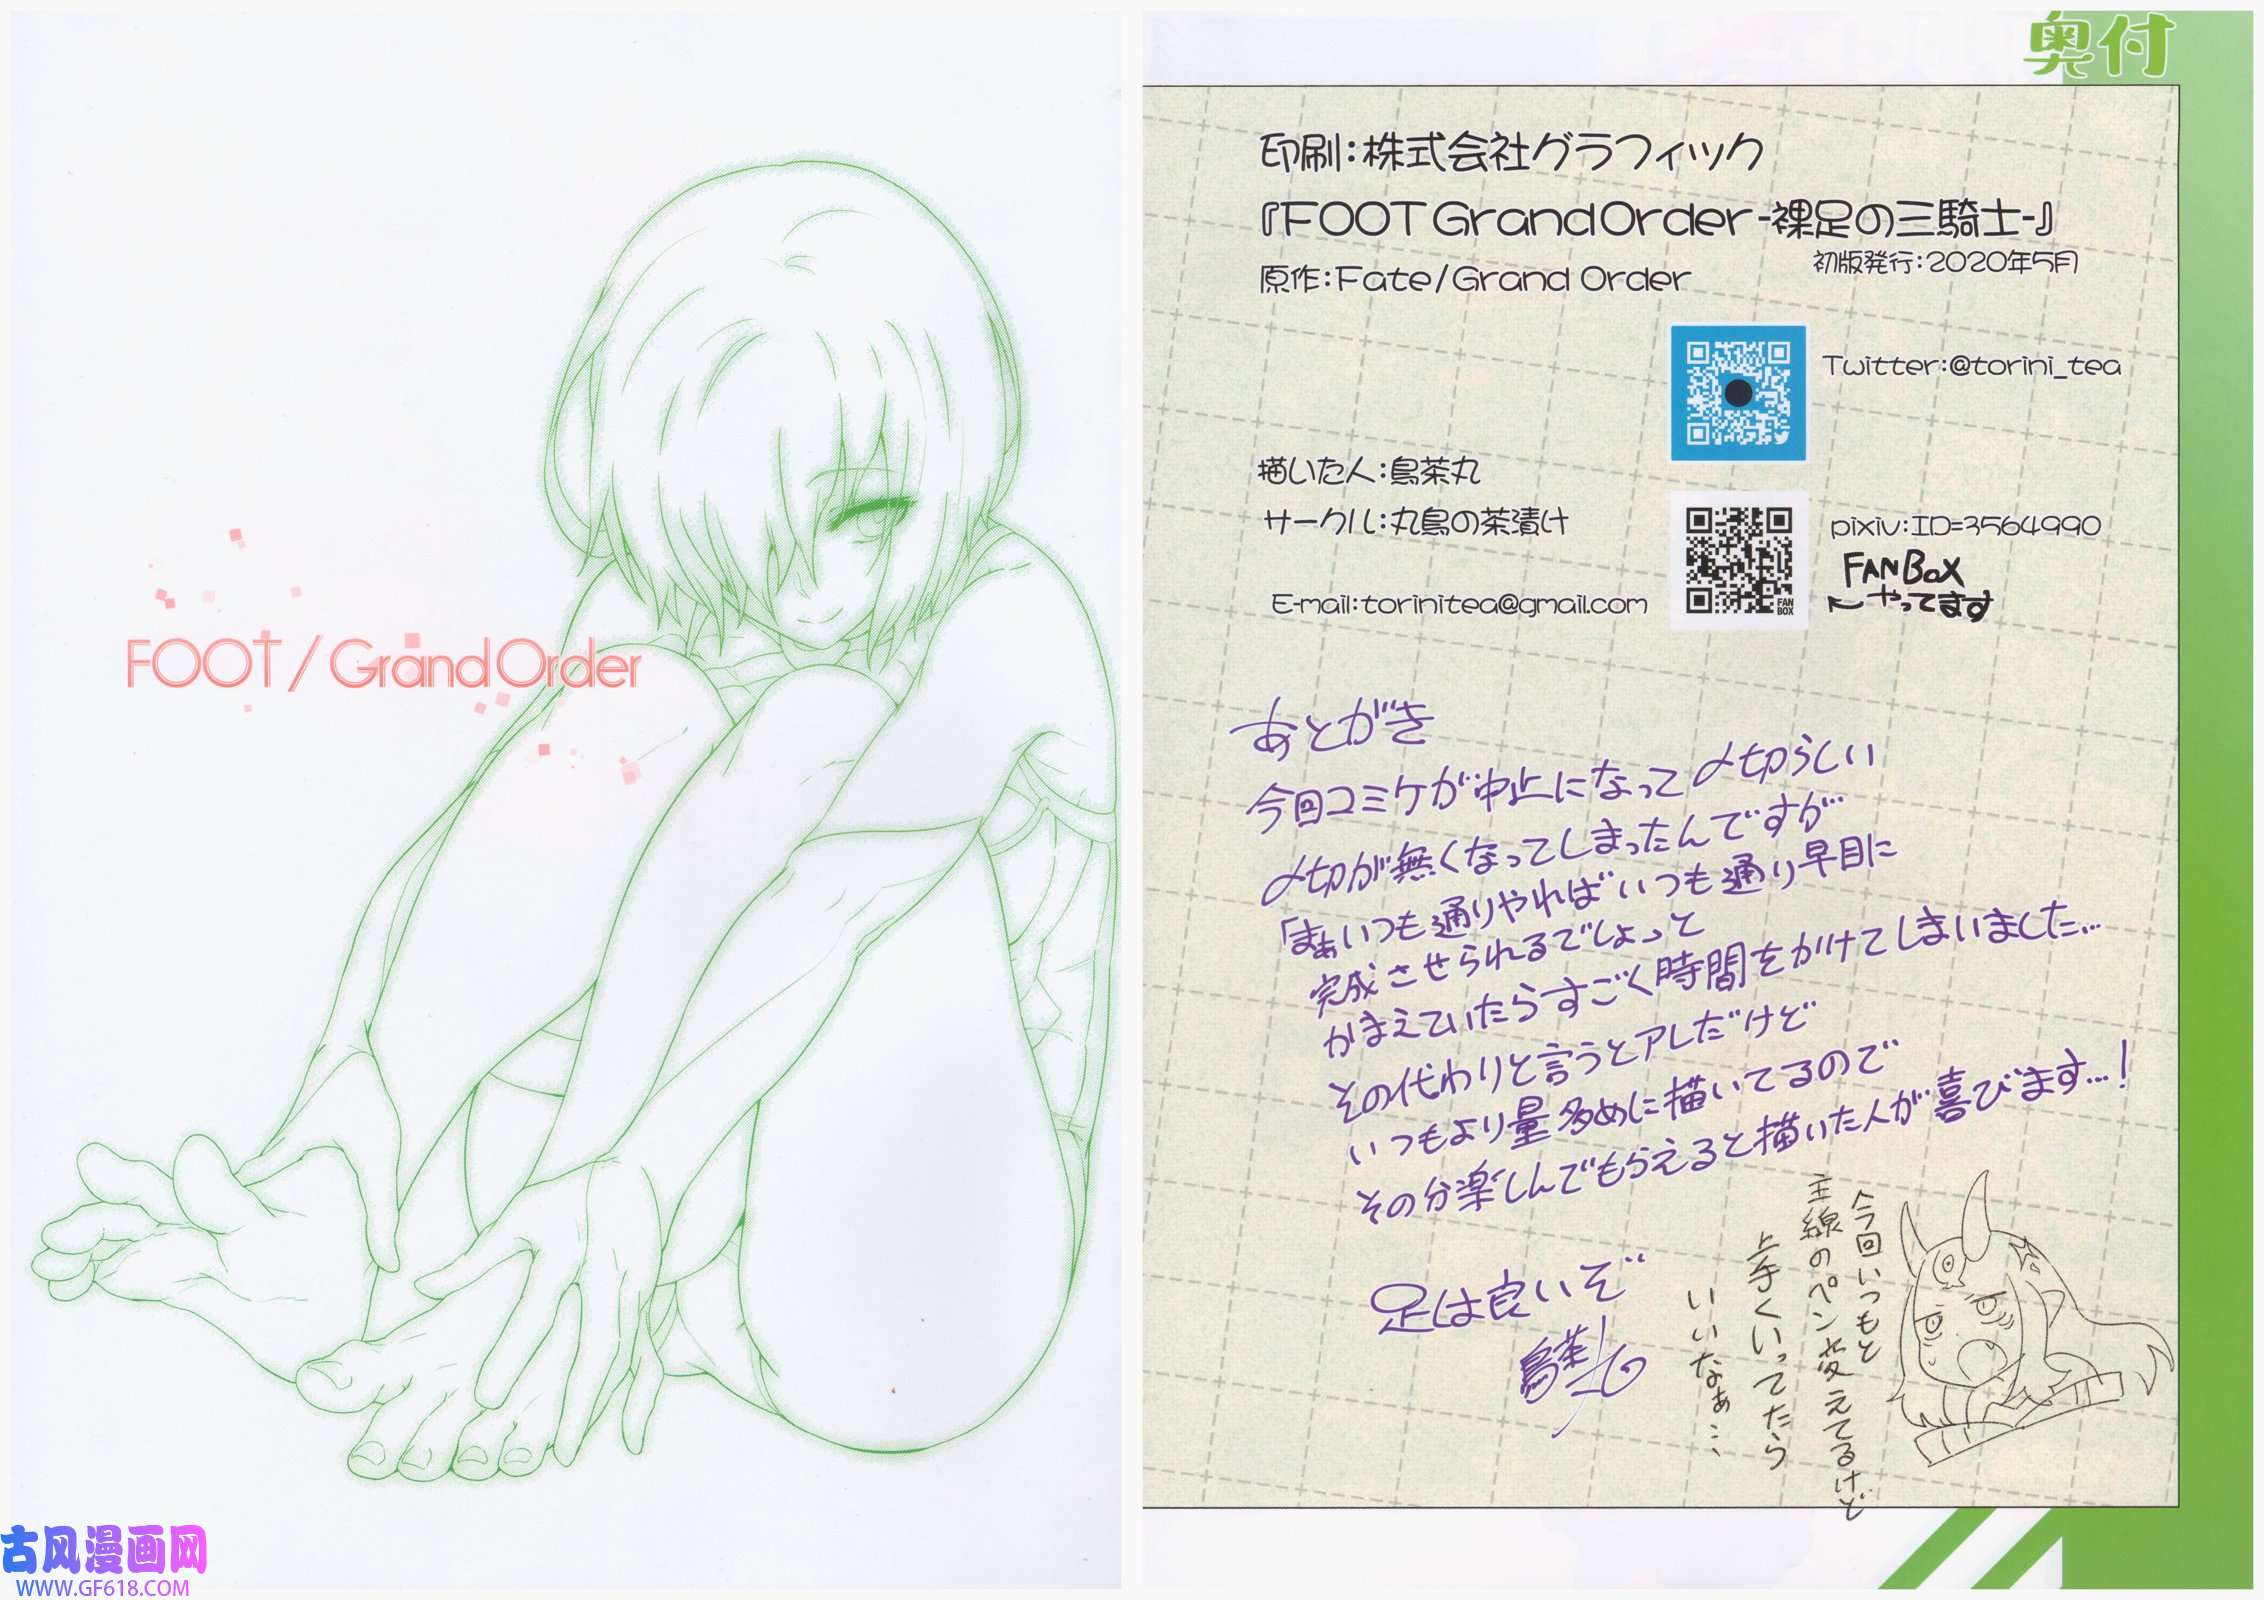 FOOT / Grand Order
古风漫画网
WWW.GF618.COM
奥付
印刷：株式会社グラフィック
『FOOT Grand Order -裸足の三騎士-』
初版発行：2020年5月
原作：Fate/Grand Order
Twitter：@torini_tea
描いた人：鳥茶丸
サークル：丸鳥の茶漬け
pixiv：ID=3564990
FANBOX
やってます
FAN
BOX
E-mail：torinitea@gmail.com
あとがき
今回コミケが中止になって〆切らしい
〆切が無くなってしまったんですが
「まぁいつも通りやればいつも通り早目に
完成させられるでしょっと
かまえていたらすごく時間をかけてしまいました…
その代わりと言うとアレだけど
いつもより量多めに描いてるので
その分楽しんでもらえると描いた人が喜びます…！
足は良いぞ
鳥茶丸
今回いつもと
主線のペン変えてるけど
上手くいってたら
いいなぁ…